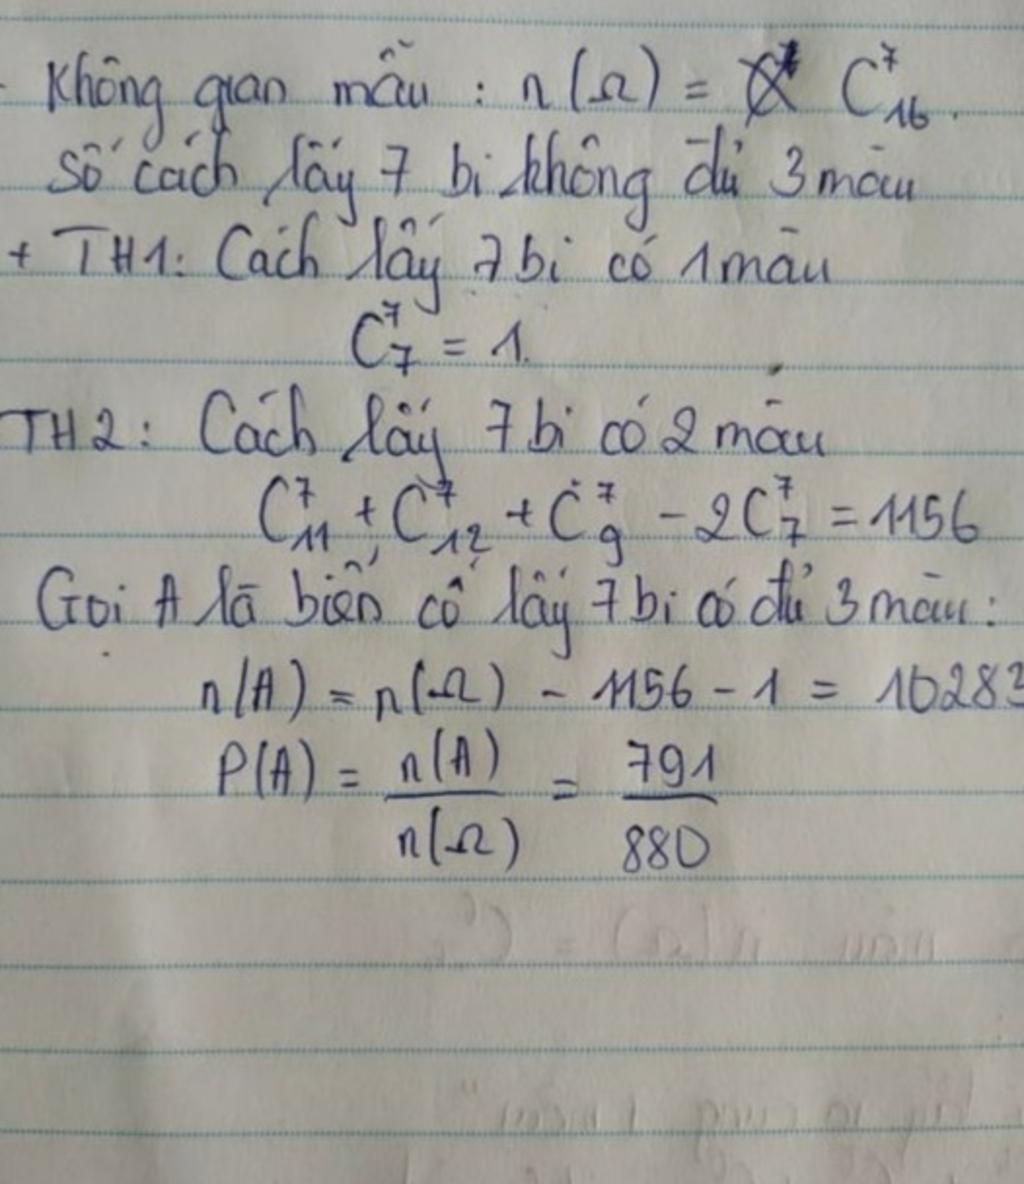 Không gian mẫu : n(Ω) = C⁷₁₆.
Số cách lấy 7 bi không đủ 3 màu
+ TH1: Cách lấy 7 bi có 1 màu
C⁷₇ = 1.
TH2: Cách lấy 7 bi có 2 màu
C⁷₁₁ + C⁷₁₂ + C⁷₉ - 2C⁷₇ = 1156
Gọi A là biến cố lấy 7 bi có đủ 3 màu:
n(A) = n(Ω) - 1156 - 1 = 10283
P(A) = n(A)/n(Ω) = 791/880